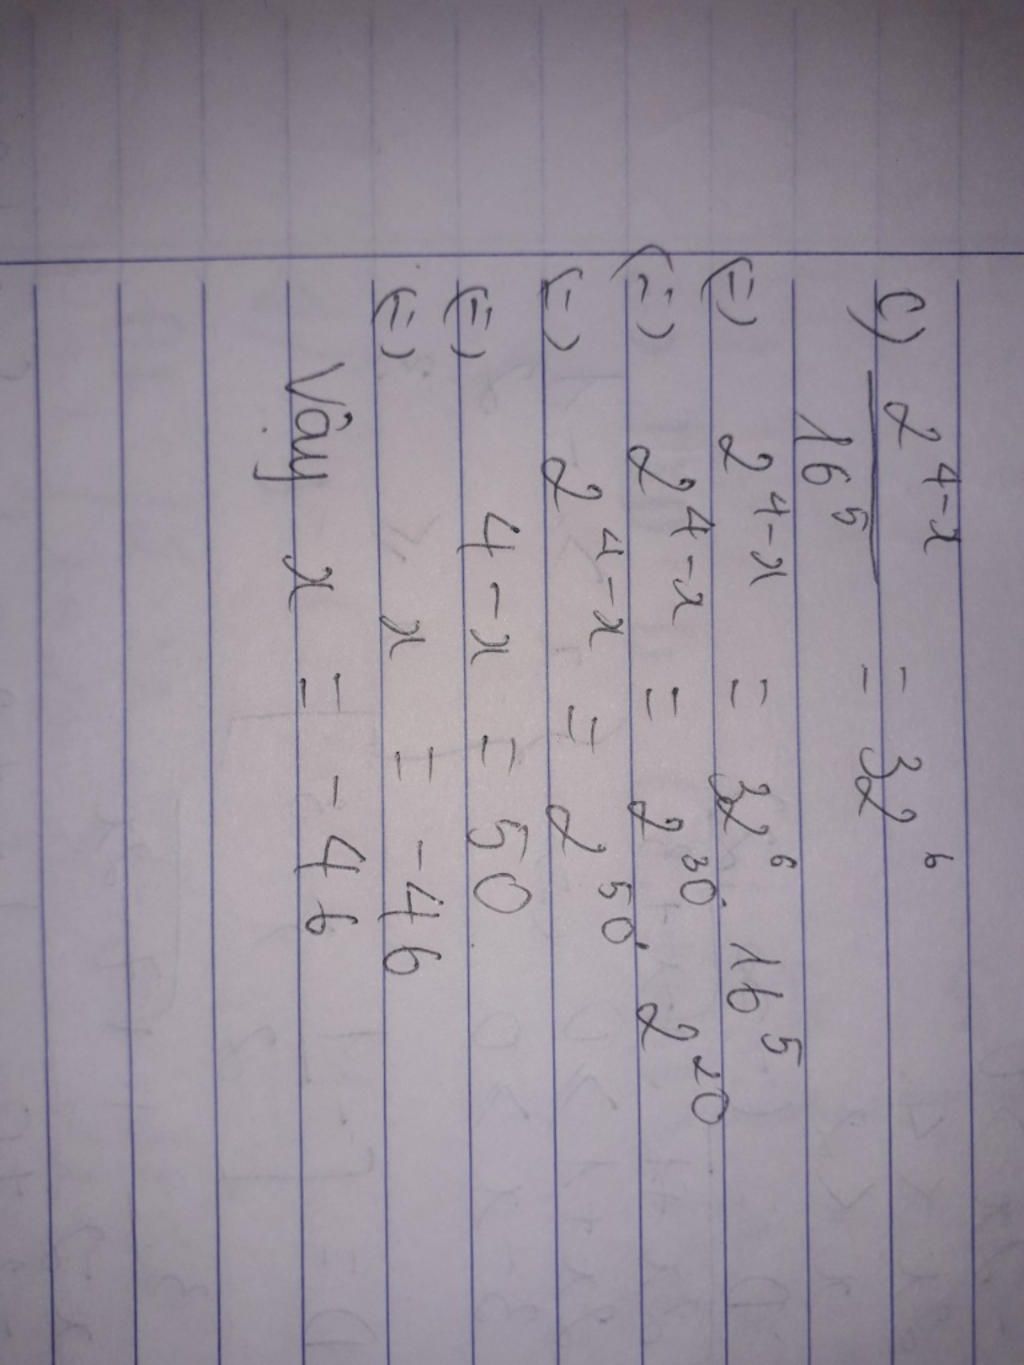 c) 2^{4-x} / 16^5 = 32^6
(=) 2^{4-x} = 32^6 . 16^5
(=) 2^{4-x} = 2^{30} . 2^{20}
(=) 2^{4-x} = 2^{50}
(=) 4-x = 50
(=) x = -46
Vậy x = -46